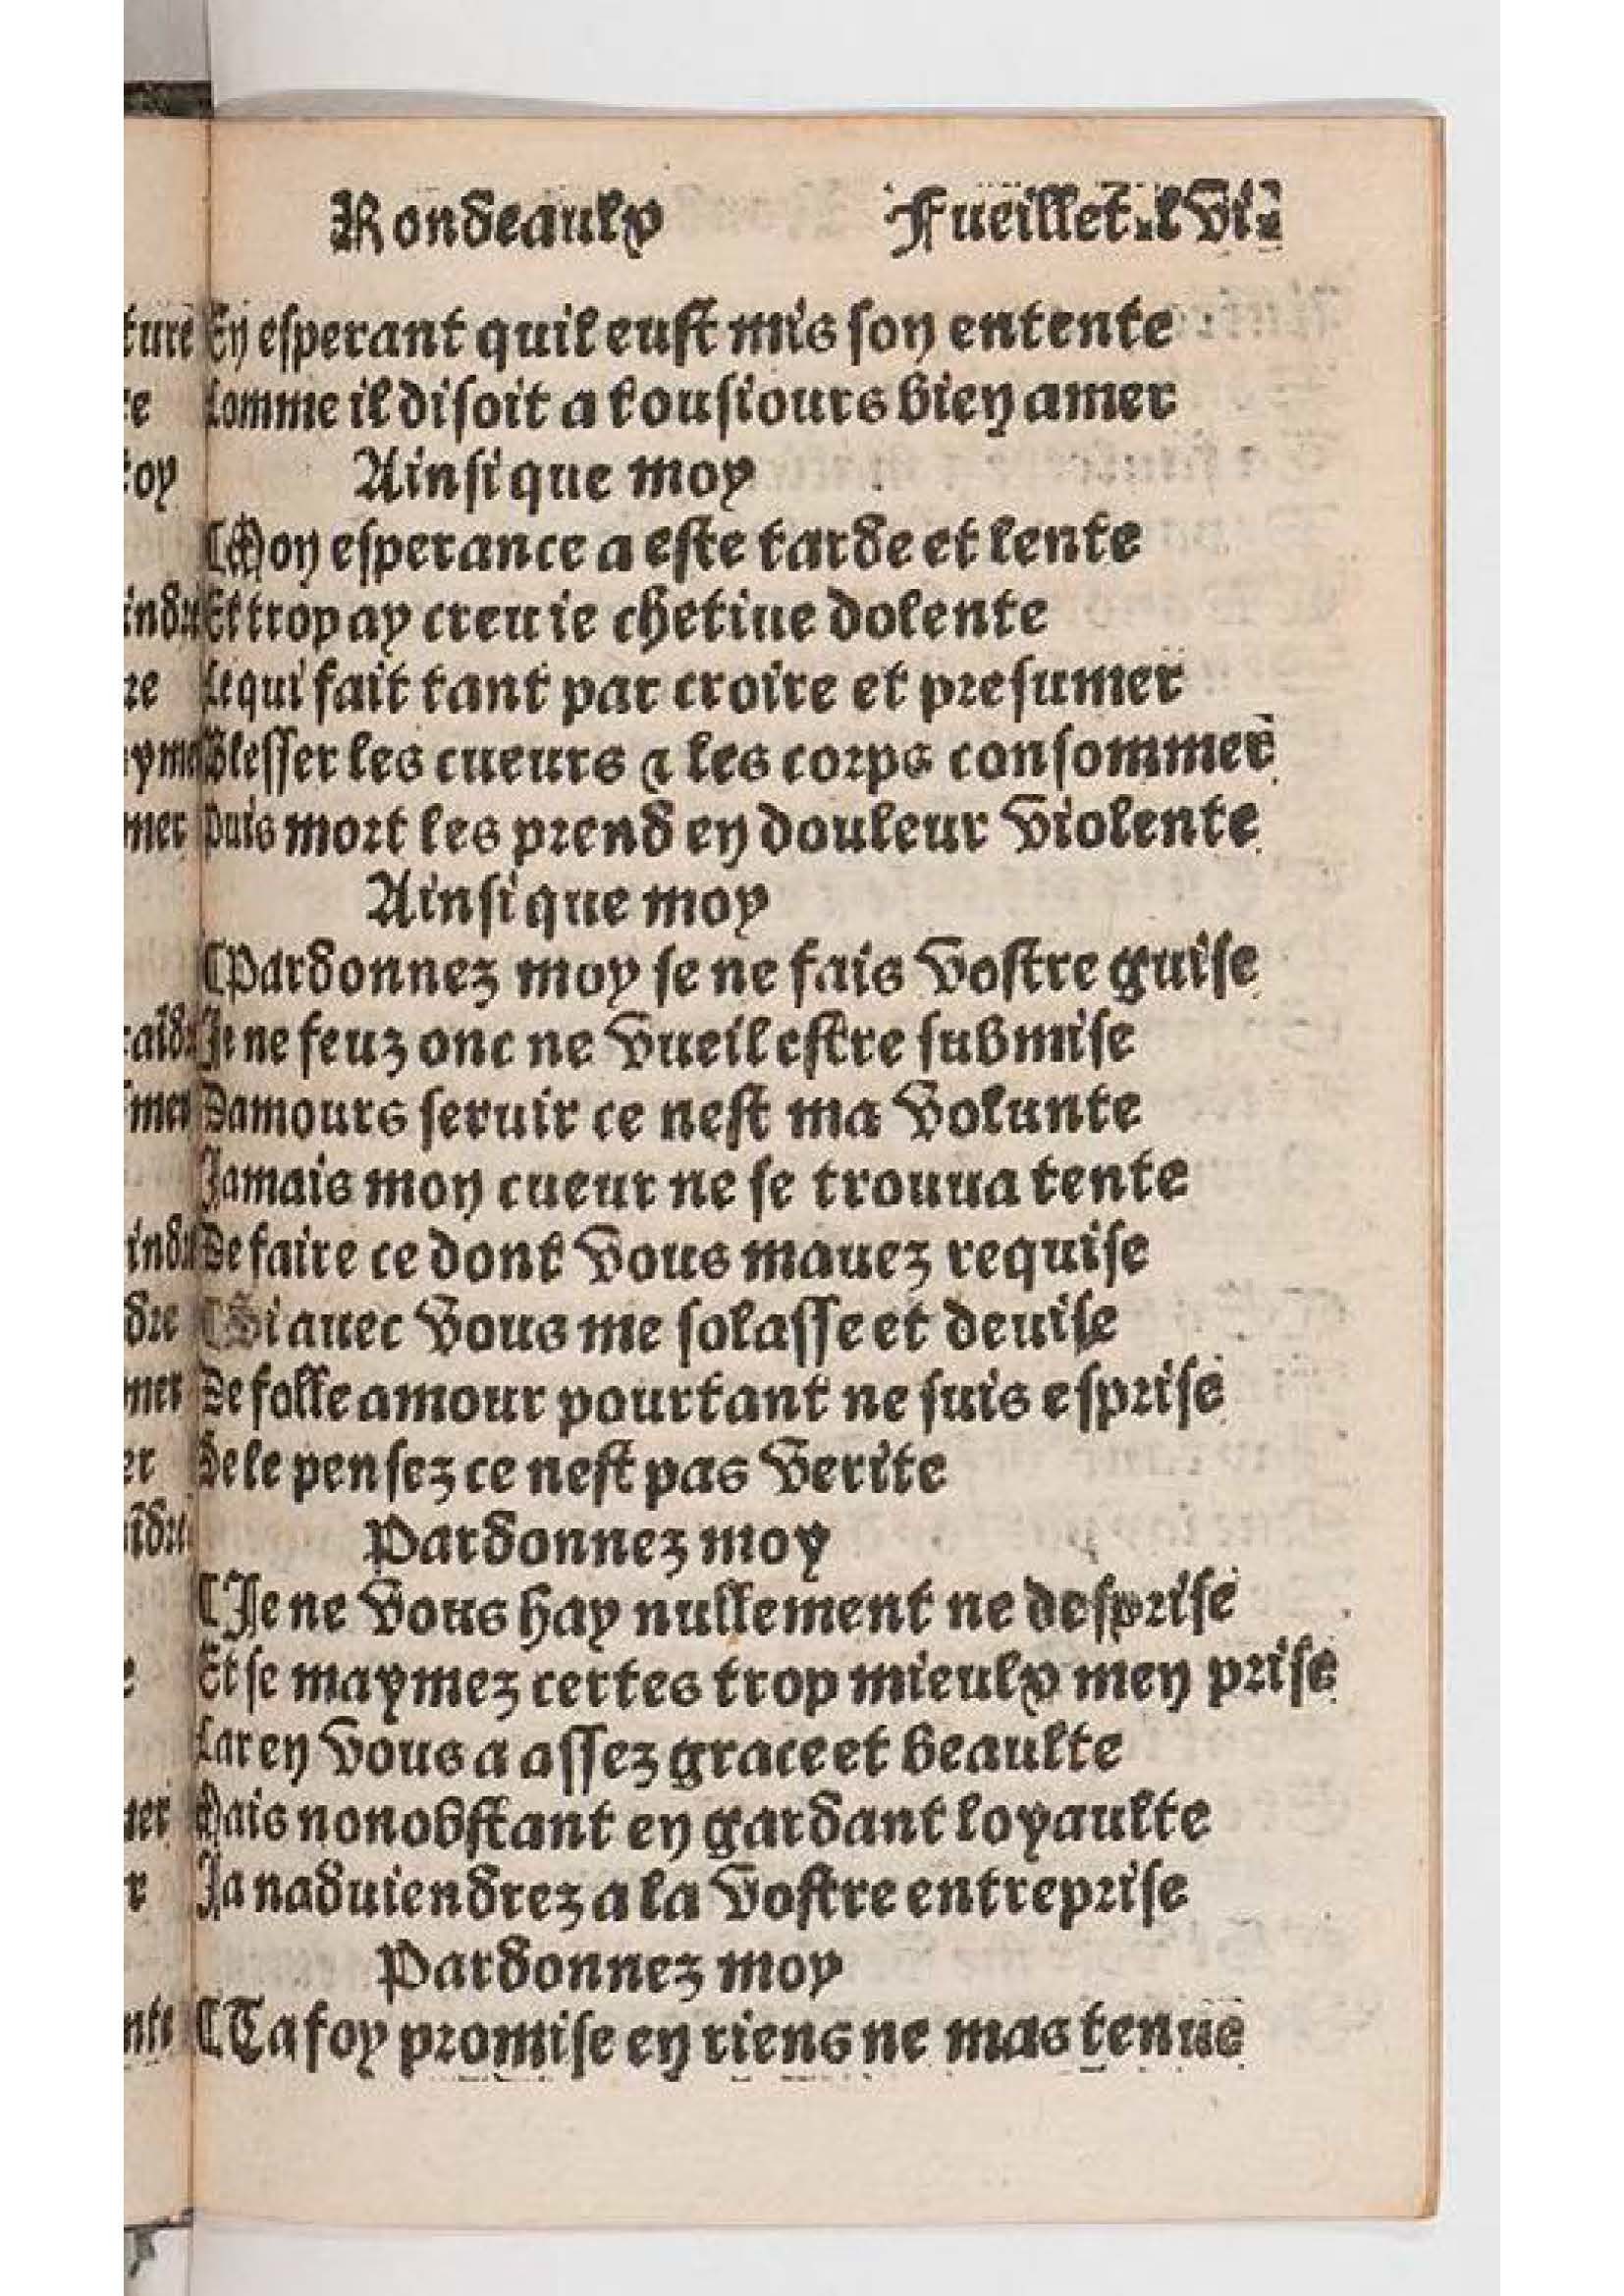 Rondeaulx Fueillet.lvi.
En esperant quil eust mis son entente
Comme il disoit a tousiours bien amer
Ainsi que moy
Mon esperance a este tarde et lente
Et trop ay creu ie chetiue dolente
Ce qui fait tant par croire et presumer
Blesser les cueurs & les corps consommer
Puis mort les prend en douleur violente
Ainsi que moy
Pardonnez moy se ne fais vostre guise
Je ne feuz onc ne vueil estre submise
Damours seruir ce nest ma volunte
Jamais mon cueur ne se trouua tente
De faire ce dont vous mauez requise
Si auec vous me solasse et deuise
De folle amour pourtant ne suis esprise
Se le pensez ce nest pas verite
Pardonnez moy
Je ne vous hay nullement ne desprise
Et se maymez certes trop mieulx men prise
Car en vous a assez grace et beaulte
Mais nonobstant en gardant loyaulte
Ja naduiendrez a la vostre entreprise
Pardonnez moy
Ta foy promise en riens ne mas tenue